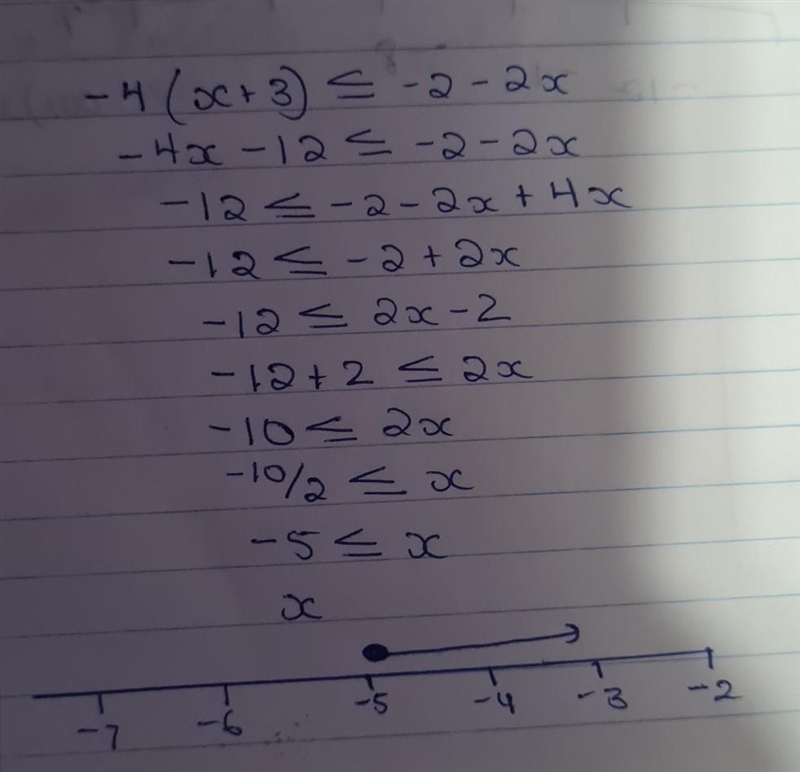 -4(x+3) ≤ -2-2x
-4x-12 ≤ -2-2x
-12 ≤ -2-2x+4x
-12 ≤ -2+2x
-12 ≤ 2x-2
-12+2 ≤ 2x
-10 ≤ 2x
-10/2 ≤ x
-5 ≤ x
x
-7 -6 -5 -4 -3 -2